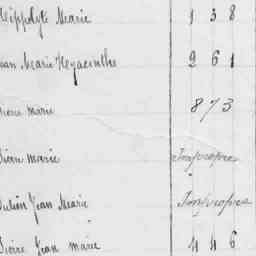 Hippolyte Marie 1 3 8
Jean Marie Hyacinthe 2 6 1
Pierre marie 873
Pierre marie Impropre
Julien Jean Marie Impropre
Pierre Jean marie 4 4 6